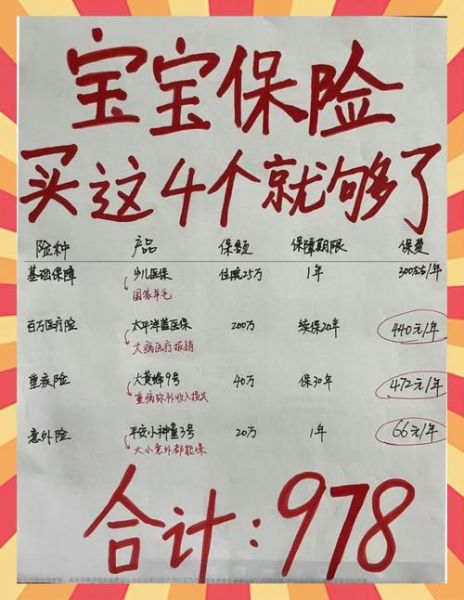 宝宝保险
买这4个就够了
险种 产品 保额 保障期限 保费
基础保障 少儿医保 住院25万 1年 300左右/年
国家羊毛
百万医疗险 太平洋蓝医保 200万 续保20年 440元/年
大病医疗报销
重疾险 大黄蜂9号 40万 保30年 472元/年
重病弥补收入损失
意外险 平安小神童3号 20万 1年 66元/年
大小意外都能保
合计:978